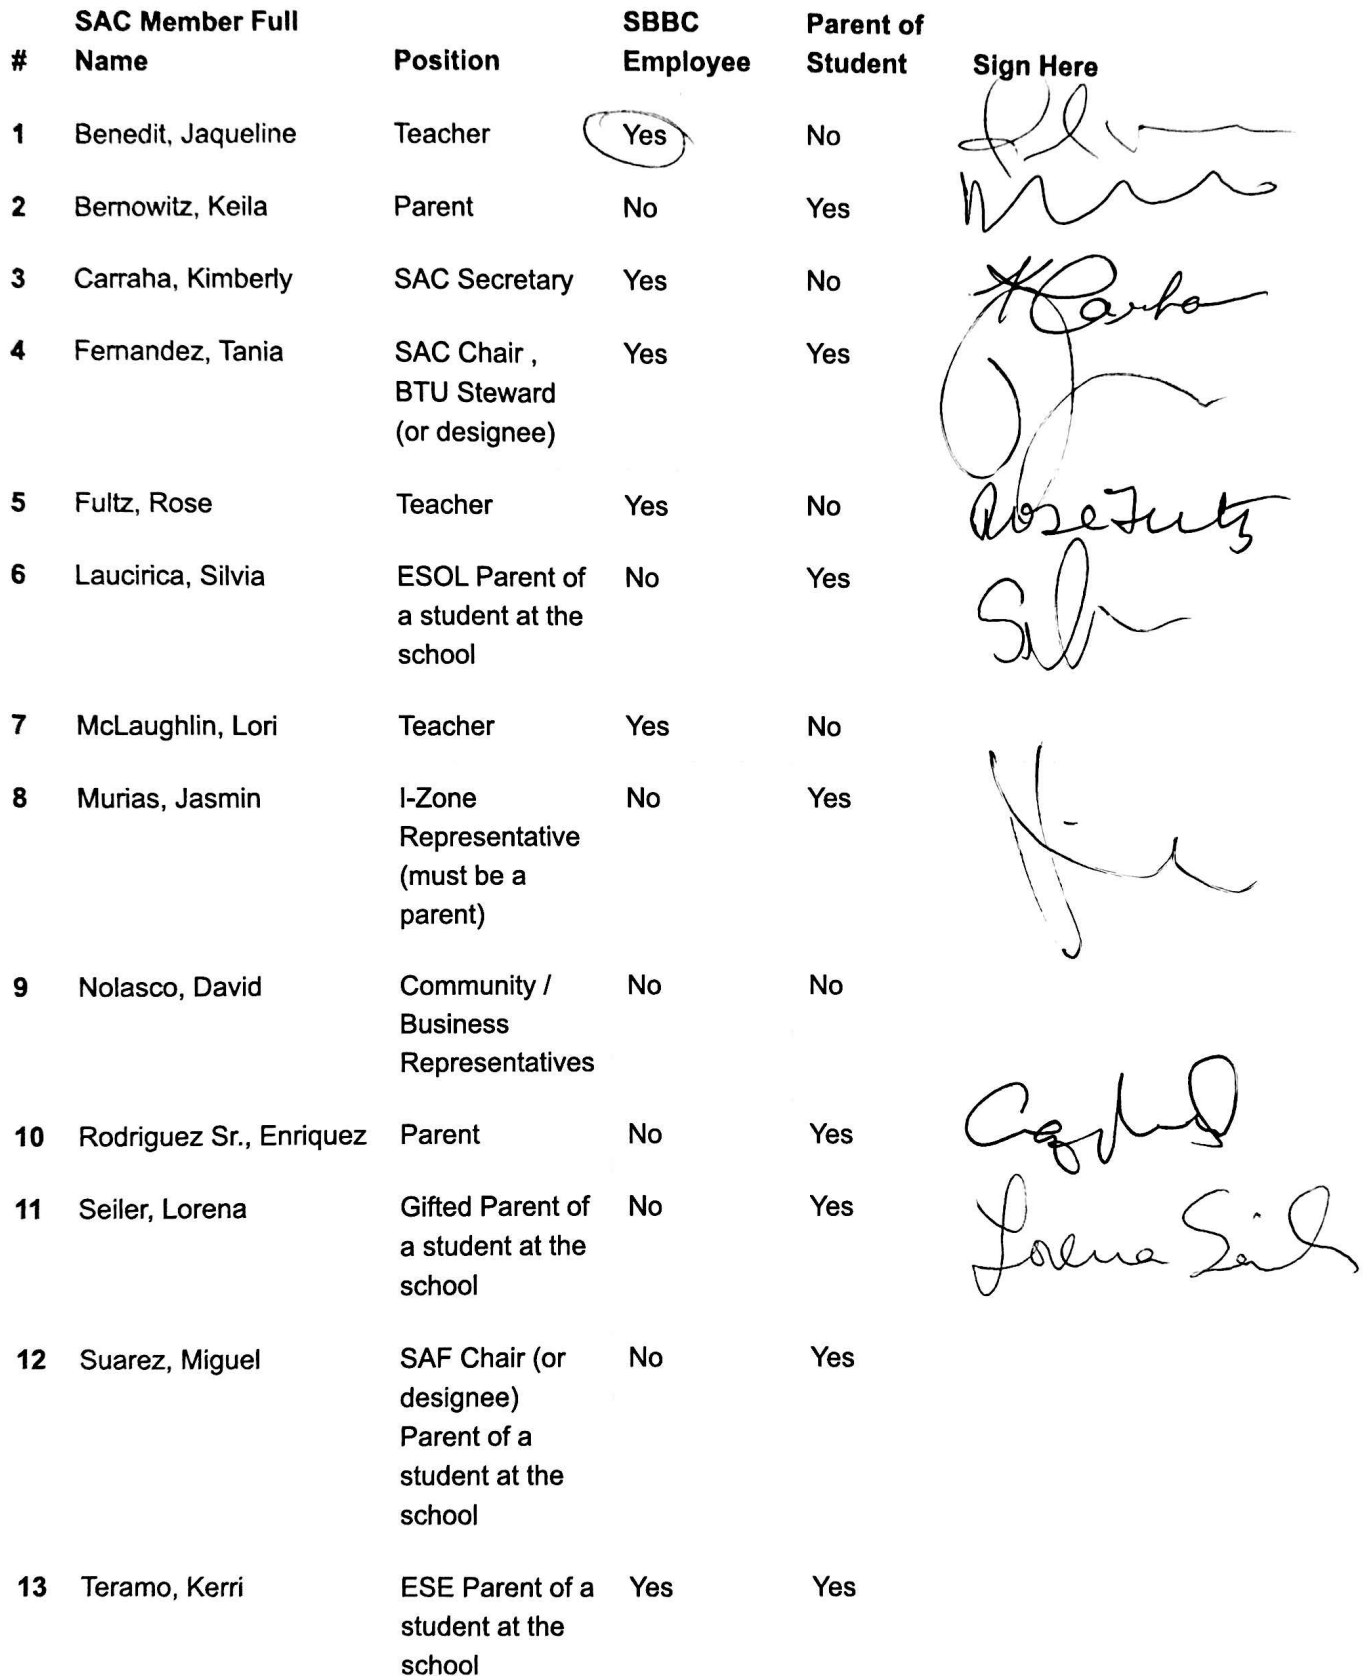 SAC Member Full SBBC Parent of
# Name Position Employee Student Sign Here
1 Benedit, Jaqueline Teacher Yes No
2 Bernowitz, Keila Parent No Yes
3 Carraha, Kimberly SAC Secretary Yes No
4 Fernandez, Tania SAC Chair , Yes Yes
BTU Steward
(or designee)
5 Fultz, Rose Teacher Yes No Rose Fultz
6 Laucirica, Silvia ESOL Parent of No Yes
a student at the
school
7 McLaughlin, Lori Teacher Yes No
8 Murias, Jasmin I-Zone No Yes
Representative
(must be a
parent)
9 Nolasco, David Community / No No
Business
Representatives
10 Rodriguez Sr., Enriquez Parent No Yes
11 Seiler, Lorena Gifted Parent of No Yes Lorena Seiler
a student at the
school
12 Suarez, Miguel SAF Chair (or No Yes
designee)
Parent of a
student at the
school
13 Teramo, Kerri ESE Parent of a Yes Yes
student at the
school